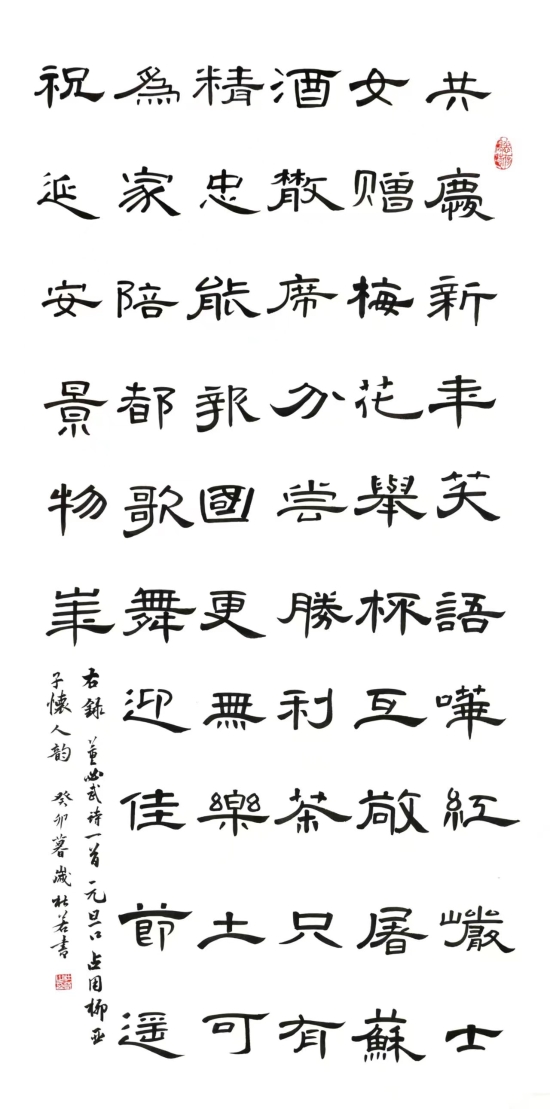 共慶新年笑語嘩紅巖士
女赠梅花舉杯互敬屠蘇
酒散席分尝勝利茶只有
精忠能報國更無樂土可
爲家陪都歌舞迎佳節遥
祝延安景物華
右錄 董必武诗一首 元旦口占用柳亚
子懷人韵 癸卯暮歲杜若書